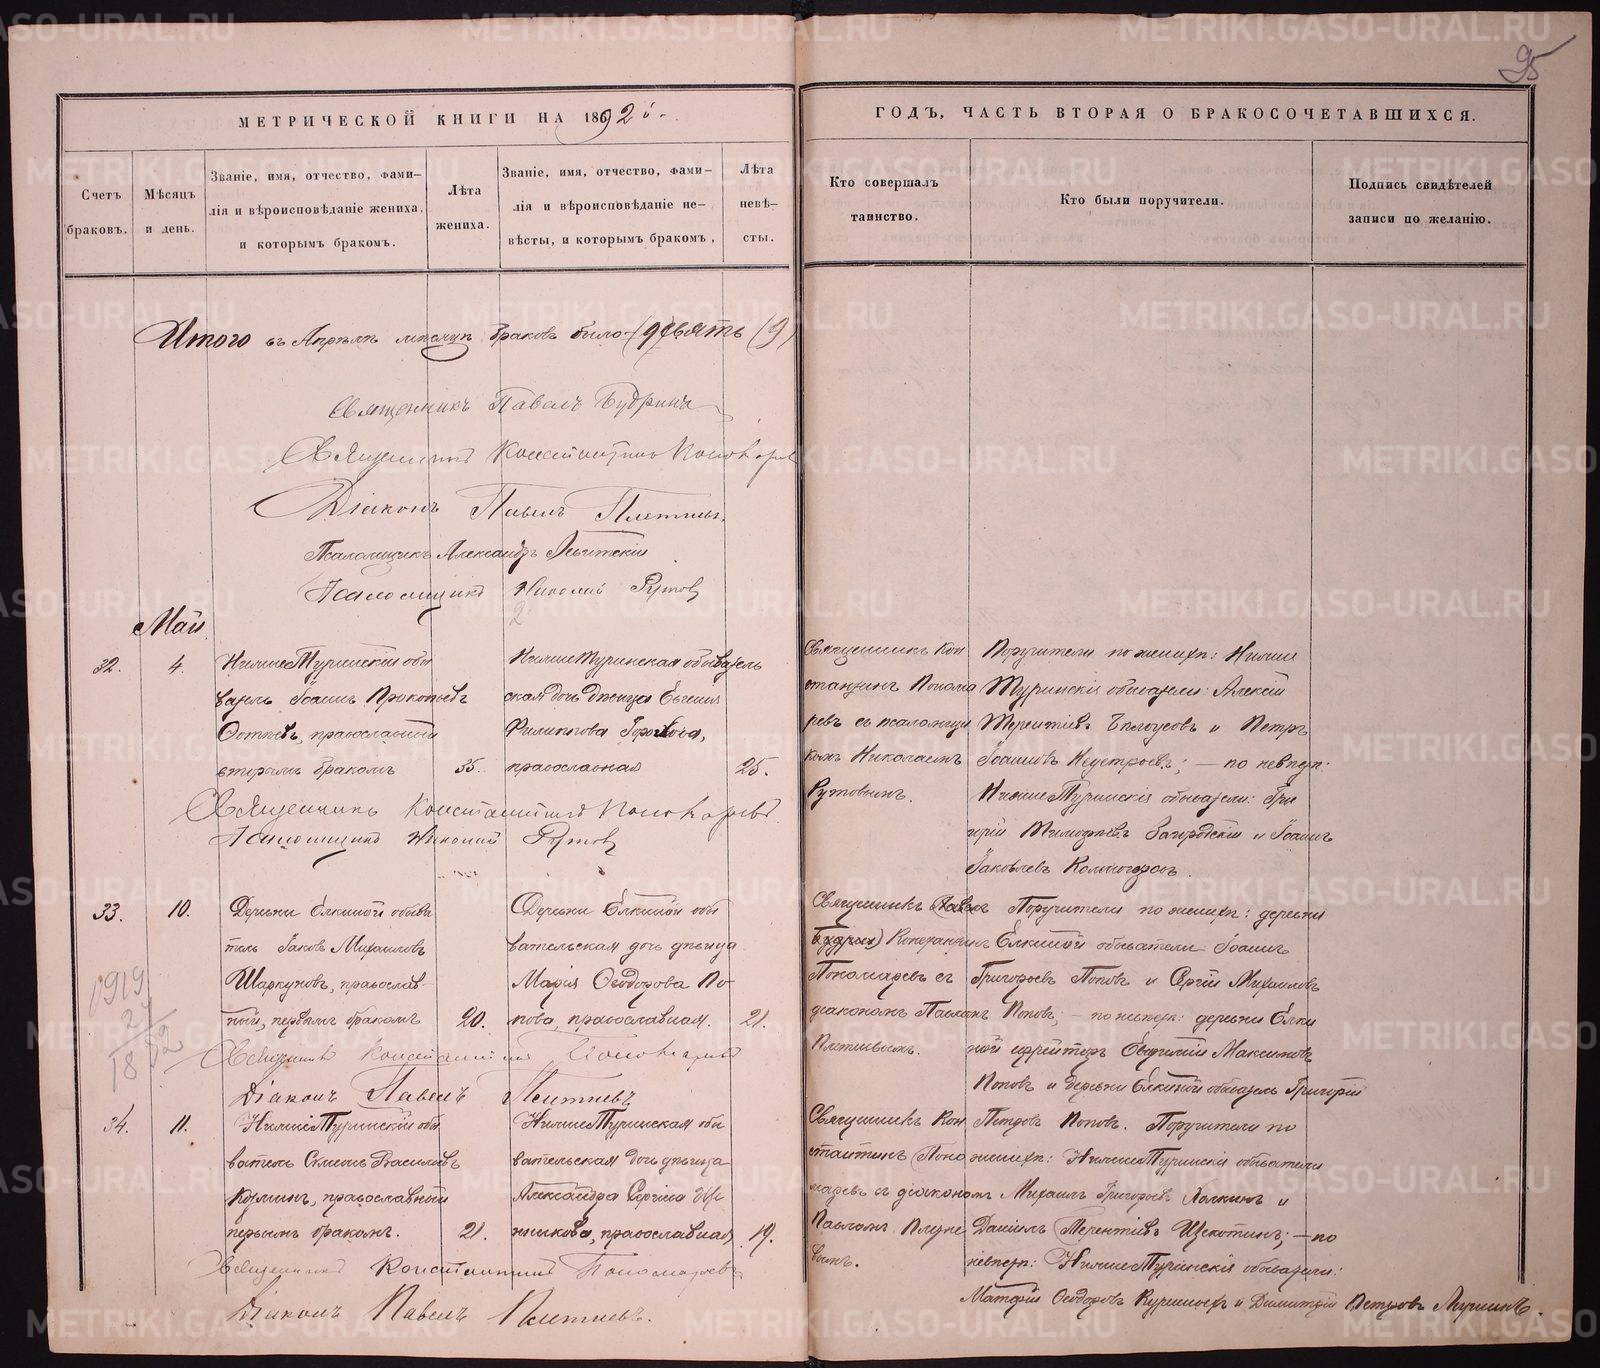 95
МЕТРИЧЕСКОЙ КНИГИ НА 1892й
ГОДЪ, ЧАСТЬ ВТОРАЯ О БРАКОСОЧЕТАВШИХСЯ.
Счетъ
браковъ.
Мѣсяцъ
и день.
Званіе, имя, отчество, фами–
лія и вѣроисповѣданіе жениха,
и которымъ бракомъ.
Лѣта
жениха.
Званіе, имя, отчество, фами–
лія и вѣроисповѣданіе не–
вѣсты, и которымъ бракомъ,
Лѣта
невѣ–
сты.
Кто совершалъ
таинство.
Кто были поручители.
Подпись свидѣтелей
записи по желанію.
Итого въ Апрѣлѣ мѣсяцѣ браковъ было (девять (9)
Священникъ Павелъ Будринъ
Священникъ Константинъ Пономаревъ
Діаконъ Павелъ Плетневъ.
Псаломщикъ Александръ
Псаломщикъ Николай Рутовъ
Май
32.
4.
НижнеТуринскій обы
ватель Іоаннъ Прокопьевъ
православный
вторымъ бракомъ
35.
НижнеТуринская обыватель
ская дочь дѣвица Евгенія
Филиппова
православная
25.
Священникъ Кон
стантинъ Понома
ревъ съ псаломщи
комъ Николаемъ
Рутовымъ.
Поручители по женихѣ: Нижне
Туринскіе обыватели: Алексій
Терентіевъ Бѣлоусовъ и Петръ
Іоанновъ Неустроевъ; – по невѣстѣ:
НижнеТуринскіе обыватели: Гри
горій Тимофеевъ Загородскій и Іоаннъ
Іаковлевъ Колмогоровъ.
Священникъ Константинъ Пономаревъ.
Псаломщикъ Николай Рутовъ
33.
10.
Деревни Елкиной обыва
тель Іаковъ Михаиловъ
Шаркуновъ, православ–
ный, первымъ бракомъ
20.
Деревни Елкиной обы
вательская дочь дѣвица
Марія Ѳеодорова По–
пова, православная.
21.
Священникъ Павелъ
Будринъ) Константинъ
Пономаревъ съ
діакономъ Павломъ
Плетневымъ.
Поручители по женихѣ: деревни
Елкиной обыватели Іоаннъ
Григорьевъ Поповъ и Сергій Михаиловъ
Поповъ; – по невѣстѣ: деревни Елки
ной ефрейторъ Максимовъ
Поповъ и деревни Елкиной обыватель Григорій
Петровъ Поповъ.
1919
24
18 92
Священникъ Константинъ Пономаревъ
Діаконъ Павелъ Плетневъ
34.
11.
НижнеТуринскій обы
ватель Симеонъ Василіевъ
Кузминъ, православный
первымъ бракомъ.
21.
НижнеТуринская обы
вательская дочь дѣвица
Александра Сергіева
православная
19.
Священникъ Кон
стантинъ Поно
маревъ съ діакономъ
Павломъ Плетне
вымъ.
Поручители по
женихѣ: НижнеТуринскіе обыватели
Михаилъ Григорьевъ Ёлкинъ и
Даніилъ Терентіевъ Щекотинъ; – по
невѣстѣ: НижнеТуринскіе обыватели:
Матѳій Ѳеодоровъ и Димитрій Петровъ
Священникъ Константинъ Пономаревъ
Діаконъ Павелъ Плетневъ.
METRIKI.GASO-URAL.RU